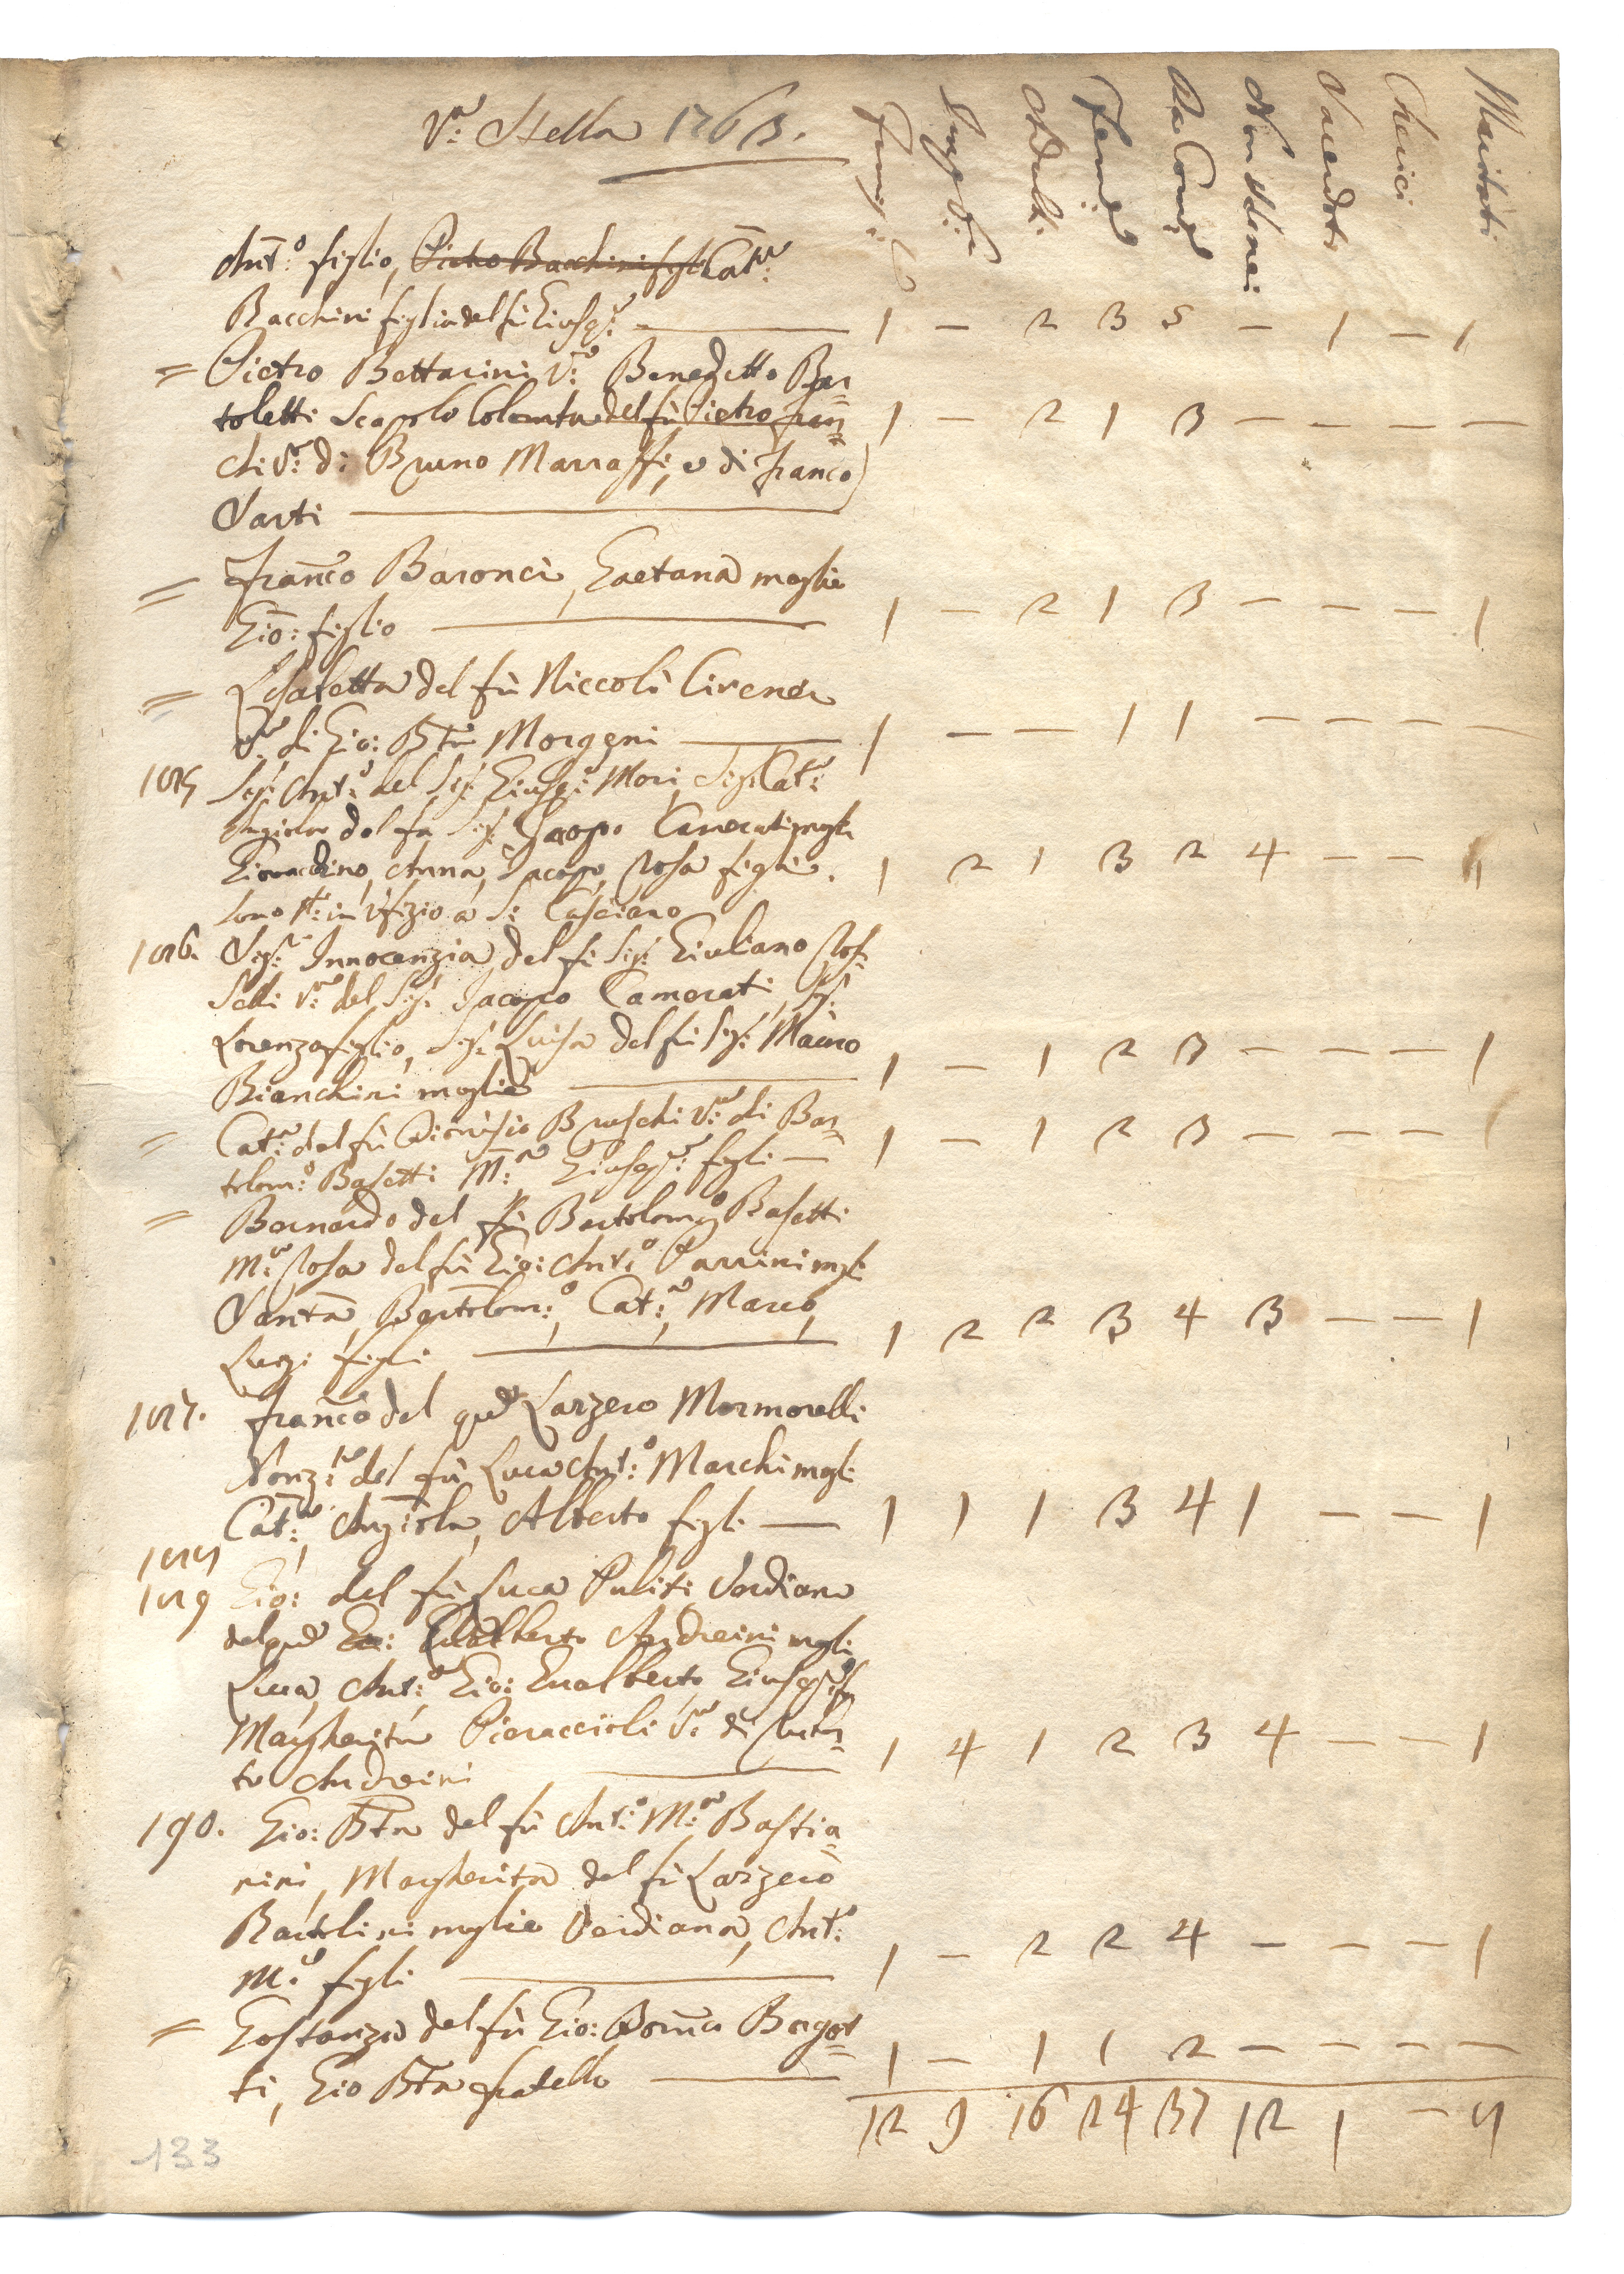 Va: Stella 1763.
Famig:e
Impub:i
Adulti
Femi:e
Da Com:e
Non da Com:
Sacerdoti
Cherici
Maritati
Ant:o figlio, Pietro Bacchini figli Cat:a
Bacchini figlia del fù Giusep:e — 1 – 2 3 5 – 1 – 1
= Pietro Bettarini V:o Benedetto Bar=
toletti Scapolo Colomba del fù Pietro Fran= 1 – 2 1 3 – – – –
chi Va: di Bruno Marraffi, e di Franco
Sarti
= Franco Baronci, Gaetana moglie
Gio: figlio — 1 – 2 1 3 – – – 1
= Lisabetta del fù Niccolò Cirenei
Va: di Gio: Bta Morgeni — 1 – – 1 1 – – – –
185 Sig: Ant:o del Sig: Giusep:e Mori, Sig: Cat:a
Angiola del fù Sig: Jacopo Camerati mogli
Giovacchino, Anna, Jacopo, Rosa figli. 1 2 1 3 2 4 – – 1
sono p: in Ufizio a S: Casciano
186. Sig:a Innocenzia del fù Sig: Giuliano Ros=
selli Va: del Sig: Jacopo Camerati, Sig:
Lorenzo figlio, Sig: Luisa del fù Sig: Mauro
Bianchini moglie — 1 – 1 2 3 – – – 1
= Cat:a del fù Dionisio Bruschi Va: di Bar=
tolom:o Basetti M:a Giusep:e figli — 1 – 1 2 3 – – – 1
= Bernardo del fù Bartolom:o Basetti
M:a Rosa del fù Gio: Ant:o Parrini mgli
Santa, Bartolom:o, Cat:a, Marco,
Luigi figli — 1 2 2 3 4 3 – – 1
187. Franco del qud Lazzero Mormorelli
Nonz:ta del fù Luca Ant:o Marchi mgli
Cat:a, Angiola, Alberto figli — 1 1 1 3 4 1 – – 1
188
189 Gio: del fù Luca Puliti Verdiana
del qud Gio: Gualberto Andreini mgli
Luca, Ant:o Gio: Gualberto Giusep:e fi
Margherita Pieraccioli Va: di
to Andreini — 1 4 1 2 3 4 – – 1
190. Gio: Bta del fù Ant:o M:a Bastia=
nini, Margherita del fù Lazzero
Bartolini moglie Verdiana, Ant:o
M:a figli — 1 – 2 2 4 – – – 1
= Costanza del fù Gio: Dom:co Bagot=
ti, Gio Bta fratello — 1 – 1 1 2 – – – –
12 9 16 24 37 12 1 – 9
133